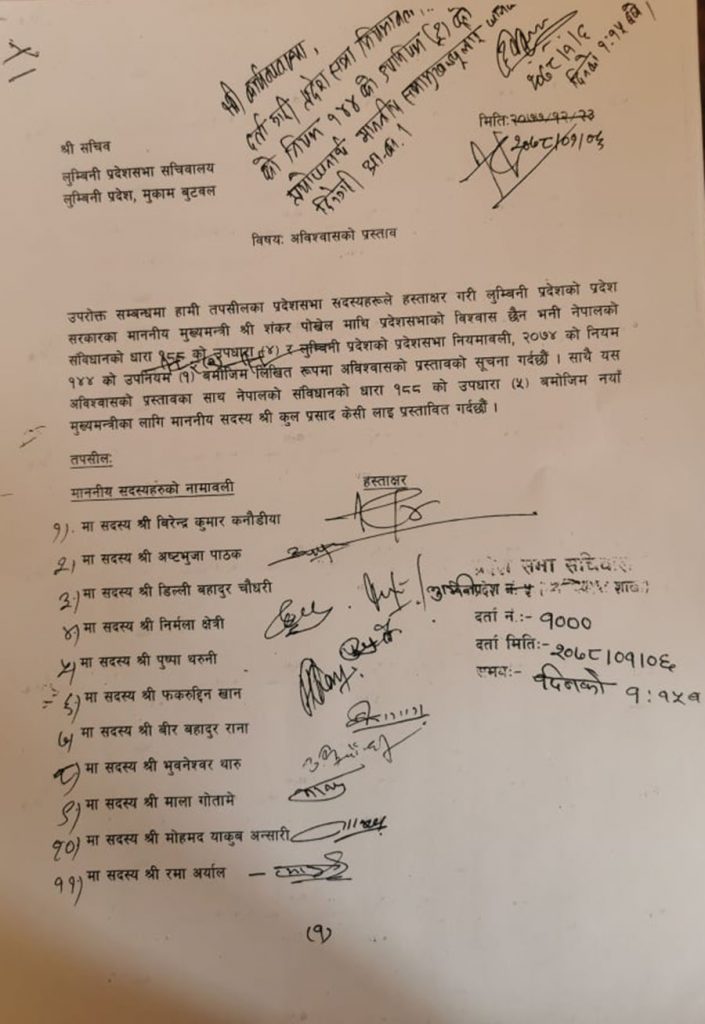 दर्ता गरी प्रदेश सभा
को नियम १४४ को उपनियम (२) को
माननीय
२०७८/१/६
दिनको १:१५ बजे।
मिति:२०७७/१२/२३
२०७८/०१/०६
श्री सचिव
लुम्बिनी प्रदेशसभा सचिवालय
लुम्बिनी प्रदेश, मुकाम बुटवल
विषय: अविश्वासको प्रस्ताव
उपरोक्त सम्बन्धमा हामी तपसीलका प्रदेशसभा सदस्यहरूले हस्ताक्षर गरी लुम्बिनी प्रदेशको प्रदेश
सरकारका माननीय मुख्यमन्त्री श्री शंकर पोखेल माथि प्रदेशसभाको विश्वास छैन भनी नेपालको
संविधानको धारा १८८ को उपधारा (४) र लुम्बिनी प्रदेशको प्रदेशसभा नियमावली, २०७४ को नियम
१४४ को उपनियम (१) बमोजिम लिखित रूपमा अविश्वासको प्रस्तावको सूचना गर्दछौं । साथै यस
अविश्वासको प्रस्तावका साथ नेपालको संविधानको धारा १८८ को उपधारा (५) बमोजिम नयाँ
मुख्यमन्त्रीका लागि माननीय सदस्य श्री कुल प्रसाद केसी लाइ प्रस्तावित गर्दछौं ।
तपसील:
माननीय सदस्यहरुको नामावली हस्ताक्षर
१) मा सदस्य श्री बिरेन्द्र कुमार कनौडीया
२) मा सदस्य श्री अष्टभुजा पाठक
३) मा सदस्य श्री डिल्ली बहादुर चौधरी
४) मा सदस्य श्री निर्मला क्षेत्री
५) मा सदस्य श्री पुष्पा थरुनी
६) मा सदस्य श्री फकरुद्दिन खान
७) मा सदस्य श्री बीर बहादुर राना
८) मा सदस्य श्री भुवनेश्वर थारु
९) मा सदस्य श्री माला गोतामे
१०) मा सदस्य श्री मोहमद याकुब अन्सारी
११) मा सदस्य श्री रमा अर्याल
प्रदेश सभा सचिवालय
दर्ता नं.:- १०००
दर्ता मिति:- २०७८/०१/०६
समय:- दिनको १:१५ब
(१)